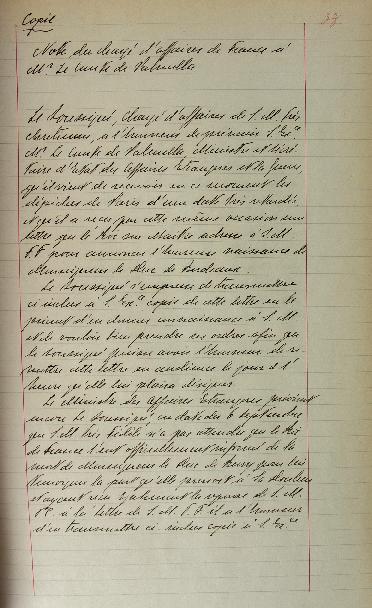 Copie
37
Note du chargé d'affaires de France à
Mr. Le Comte de Palmella
Le Soussigné, Chargé d'affaires de S. M. très
chretienne, a l'honneur de prévenir S. Exce.
Mr. Le Comte de Palmella Ministre et Secré-
taire d'Etat des Affaires Etrangères et la Guerre,
qu'il vient de recevoir en ce moment les
dépêches de Paris d'une date très
et qu'il a reçu par cette même occasion une
lettre que le Roi son Maitre adresse à S. M.
T. F. pour annoncer l'heureuse naissance de
Monseigneur le Duc de Bordeaux.
Le Soussigné s'empresse de transmettre
ci inclus à S. Exce. Copie de cette lettre en le
priant d'en donner connaissance à S. M.
et de vouloir bien prendre ses ordres afin que
le Soussigné puisse avoir l'honneur de re-
mettre cette lettre en audience le jour et l'
heure qu'elle lui plaira désigner.
Le Ministre des Affaires Etrangères prévient
encore le Soussigné, en date du 6 Septembre
que S. M. Très Fidèle n'a pas attendu que le Roi
de France l'eut officiellement informé de la
mort de Monseigneur le Duc de Berry pour lui
témoigner la part qu'elle prenoit à la douleur
et ayant reçu également la réponse de S. M.
à la lettre de S. M. T. F. il a l'honneur
d'en transmettre ci inclus copie à S. Exce.